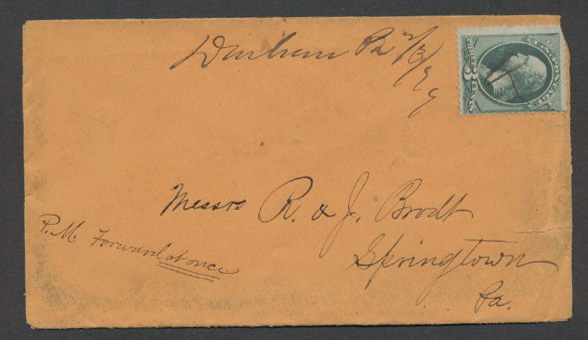 Durham Pa 2/3/79
Messrs R. & J. Brodt
Springtown
Pa.
P.M. Forward at once